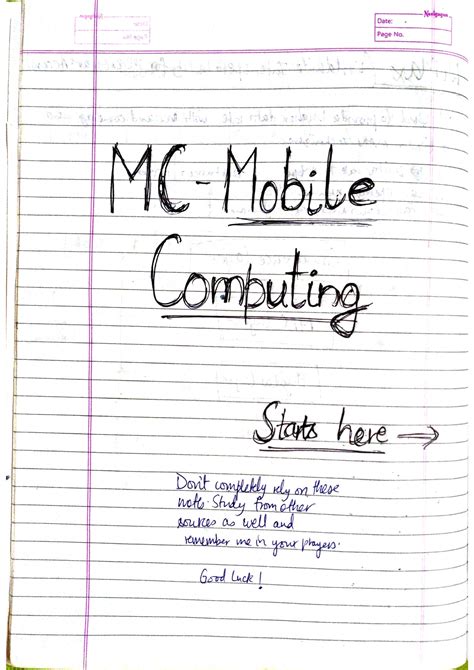 Navneet
Date:
Page No.
MC - Mobile
Computing
Starts here →
Don't completely rely on these
notes. Study from other
sources as well and
remember me in your prayers.
Good Luck!